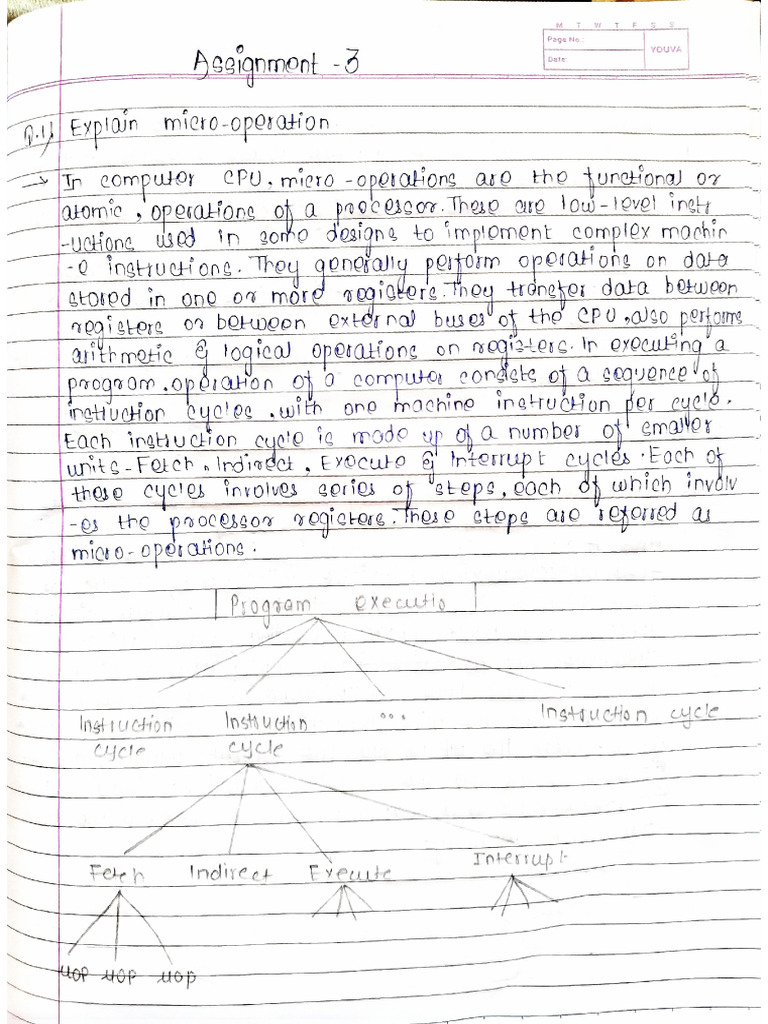 M T W T F S S
Page No.:
Date:
YOUVA
Assignment -3
Q.1) Explain micro-operation
→ In computer CPU, micro-operations are the functional or
atomic, operations of a processor. These are low-level instr
-uctions used in some designs to implement complex machin
-e instructions. They generally perform operations on data
stored in one or more registers. They transfer data between
registers or between external buses of the CPU, also performs
arithmetic & logical operations on registers. In executing a
program, operation of a computer consists of a sequence of
instruction cycles, with one machine instruction per cycle.
Each instruction cycle is made up of a number of smaller
units - Fetch, Indirect, Execute & Interrupt cycles. Each of
these cycles involves series of steps, each of which involv
-es the processor registers. These steps are referred as
micro-operations.
Program executio
Instruction cycle
Instruction cycle
...
Instruction cycle
Fetch Indirect Execute Interrupt
μOP μOP μOP